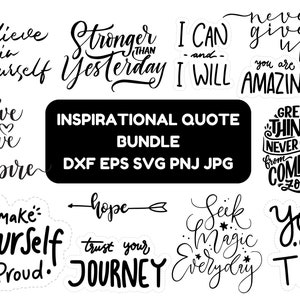 lieve
in
urself
Stronger
THAN
Yesterday
I CAN
and
I WILL
never
give
you are
AMAZIN
INSPIRATIONAL QUOTE
BUNDLE
DXF EPS SVG PNJ JPG
ve
ve
pire
GREA
THIN
NEVER
from
COM
ZO
make
urself
Proud!
hope
trust your
JOURNEY
Seek
Magic
Everyday
Yo
T